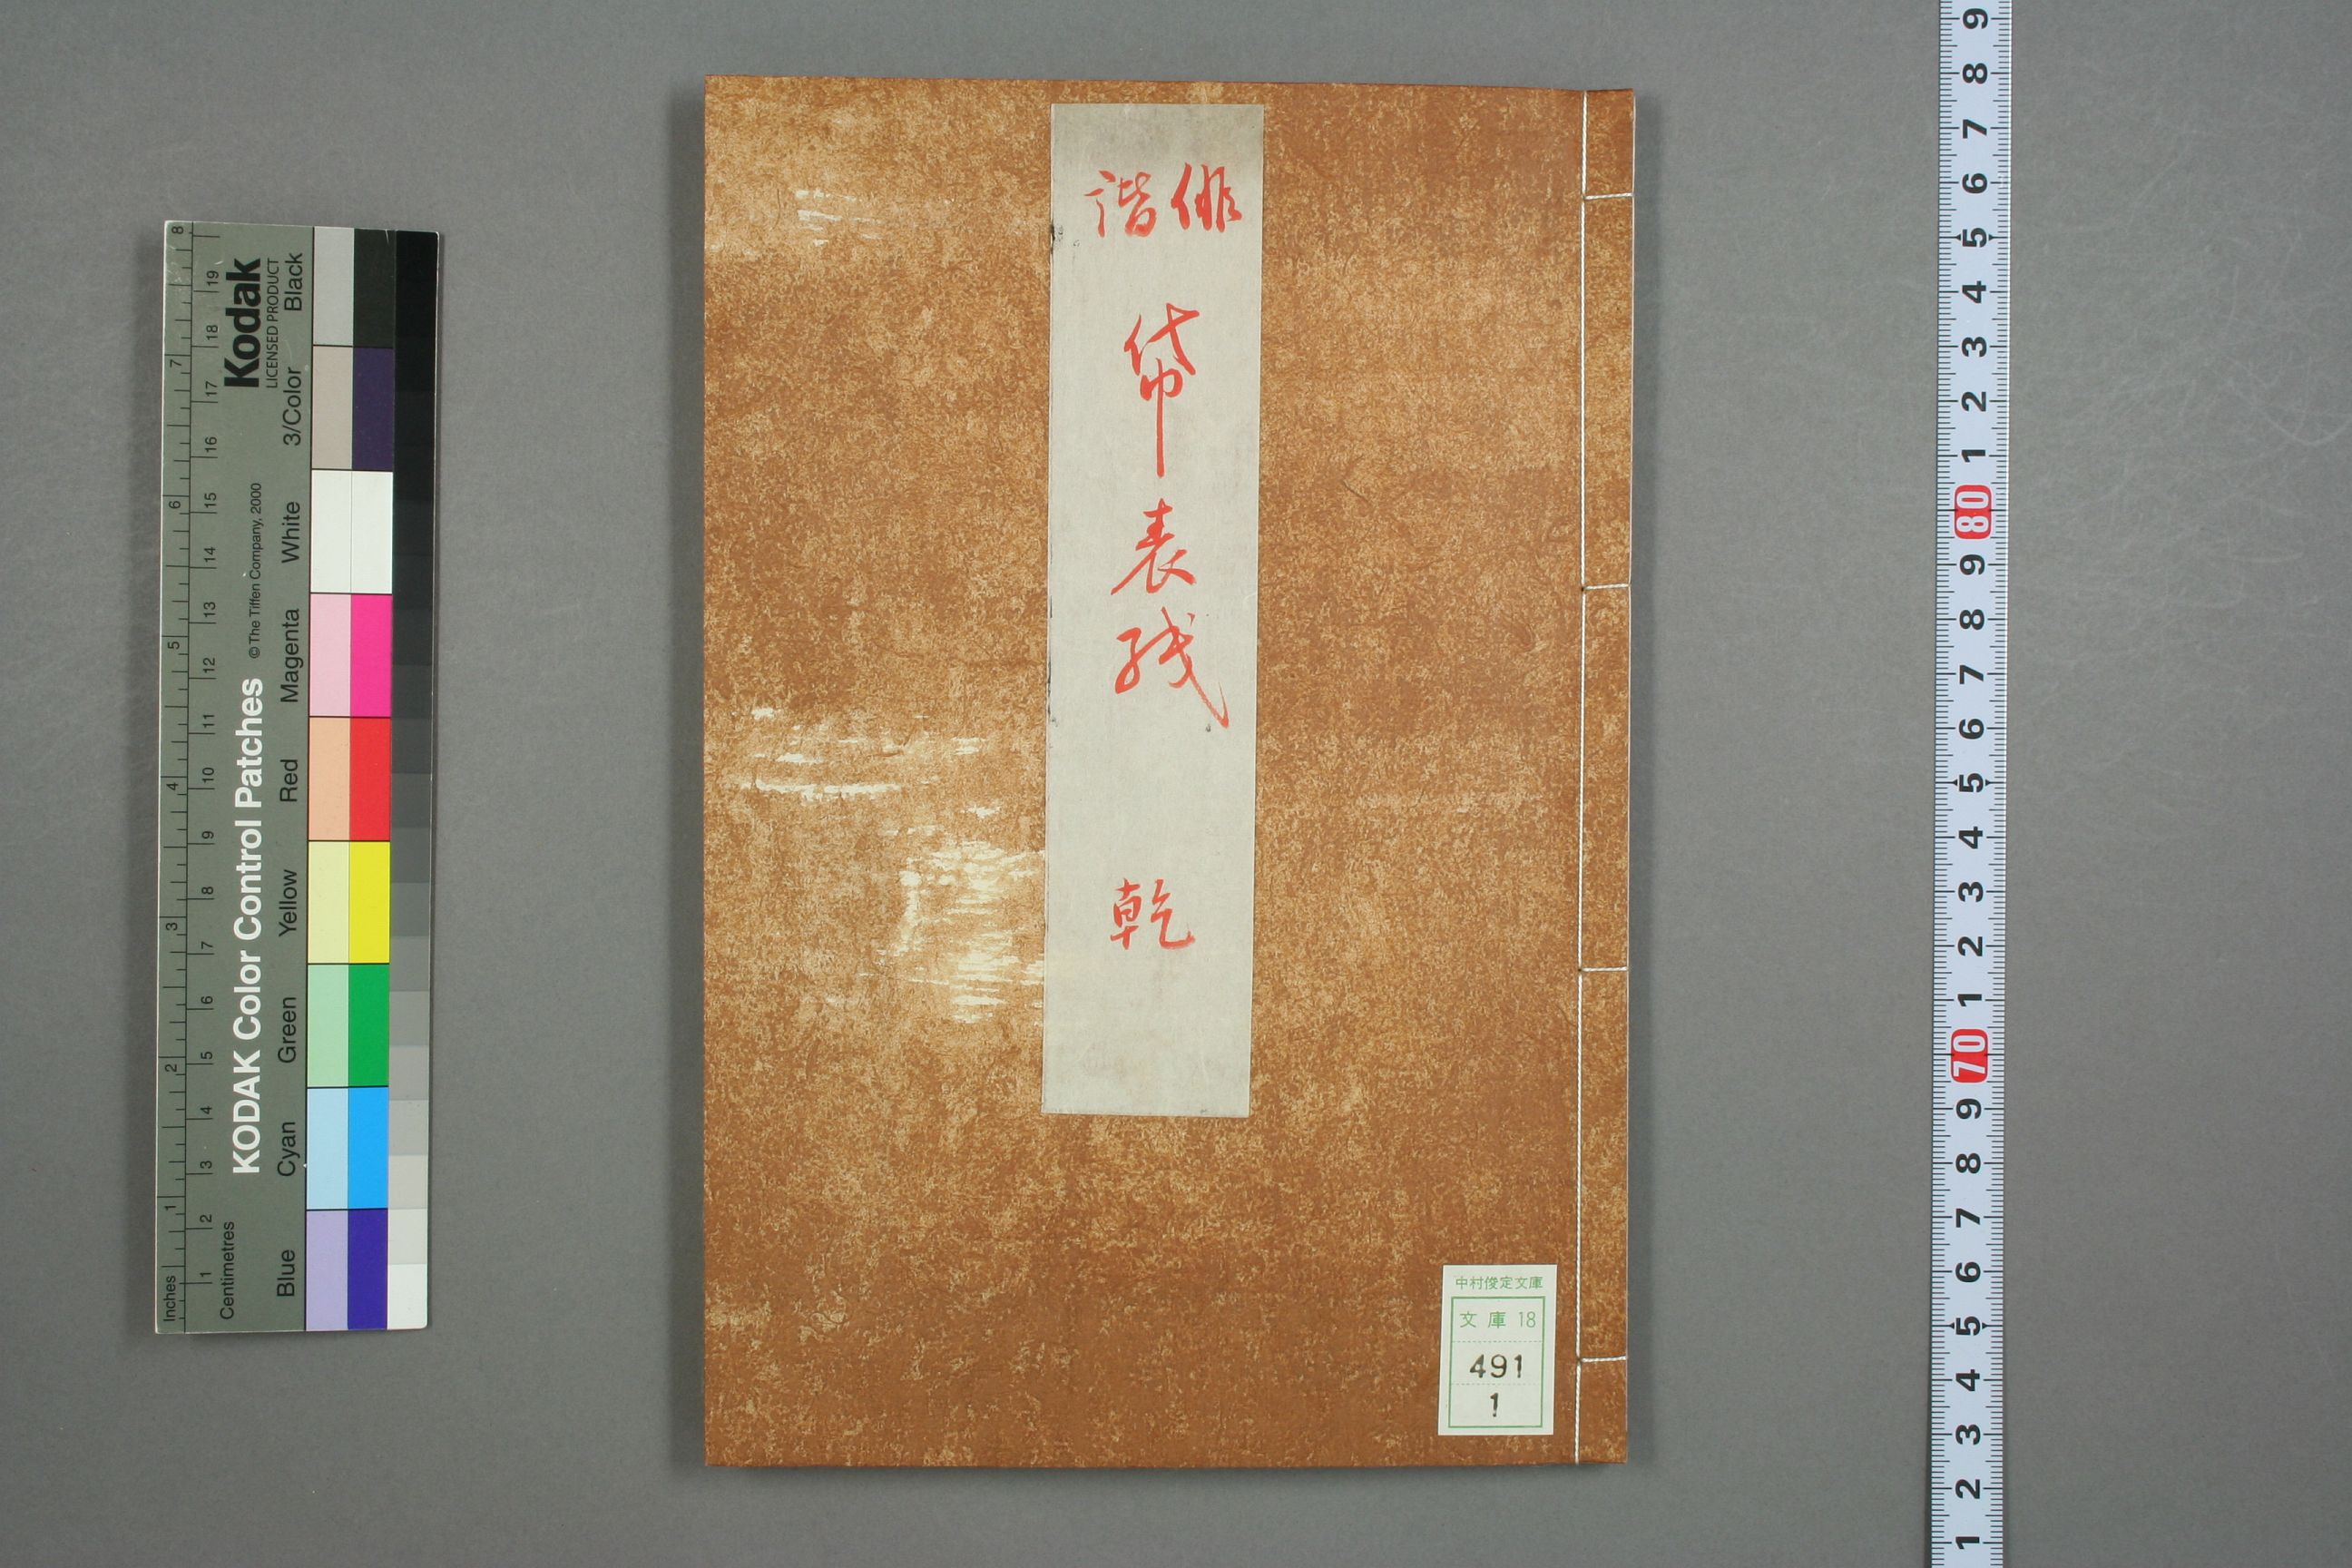 俳諧
帒表紙
乾
中村俊定文庫
文庫 18
491
1
Kodak
LICENSED PRODUCT
KODAK Color Control Patches
© The Tiffen Company, 2000
Blue Cyan Green Yellow Red Magenta White 3/Color Black
Inches 1 2 3 4 5 6 7 8
Centimetres 1 2 3 4 5 6 7 8 9 10 11 12 13 14 15 16 17 18 19
9 8 7 6 5 4 3 2 1 80 9 8 7 6 5 4 3 2 1 70 9 8 7 6 5 4 3 2 1